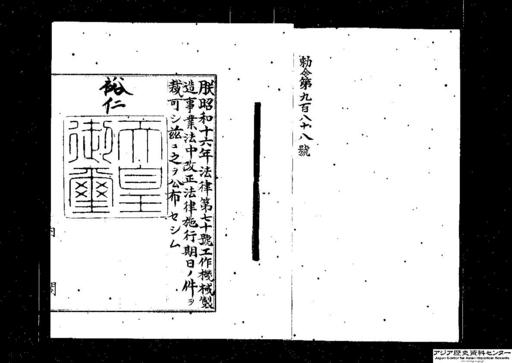 勅令第九百八十八號
朕昭和十六年法律第七十號工作機械製
造事業法中改正法律施行期日ノ件ヲ
裁可シ茲ニ之ヲ公布セシム
裕仁
天皇
御璽
内閣
アジア歴史資料センター
Japan Center for Asian Historical Records